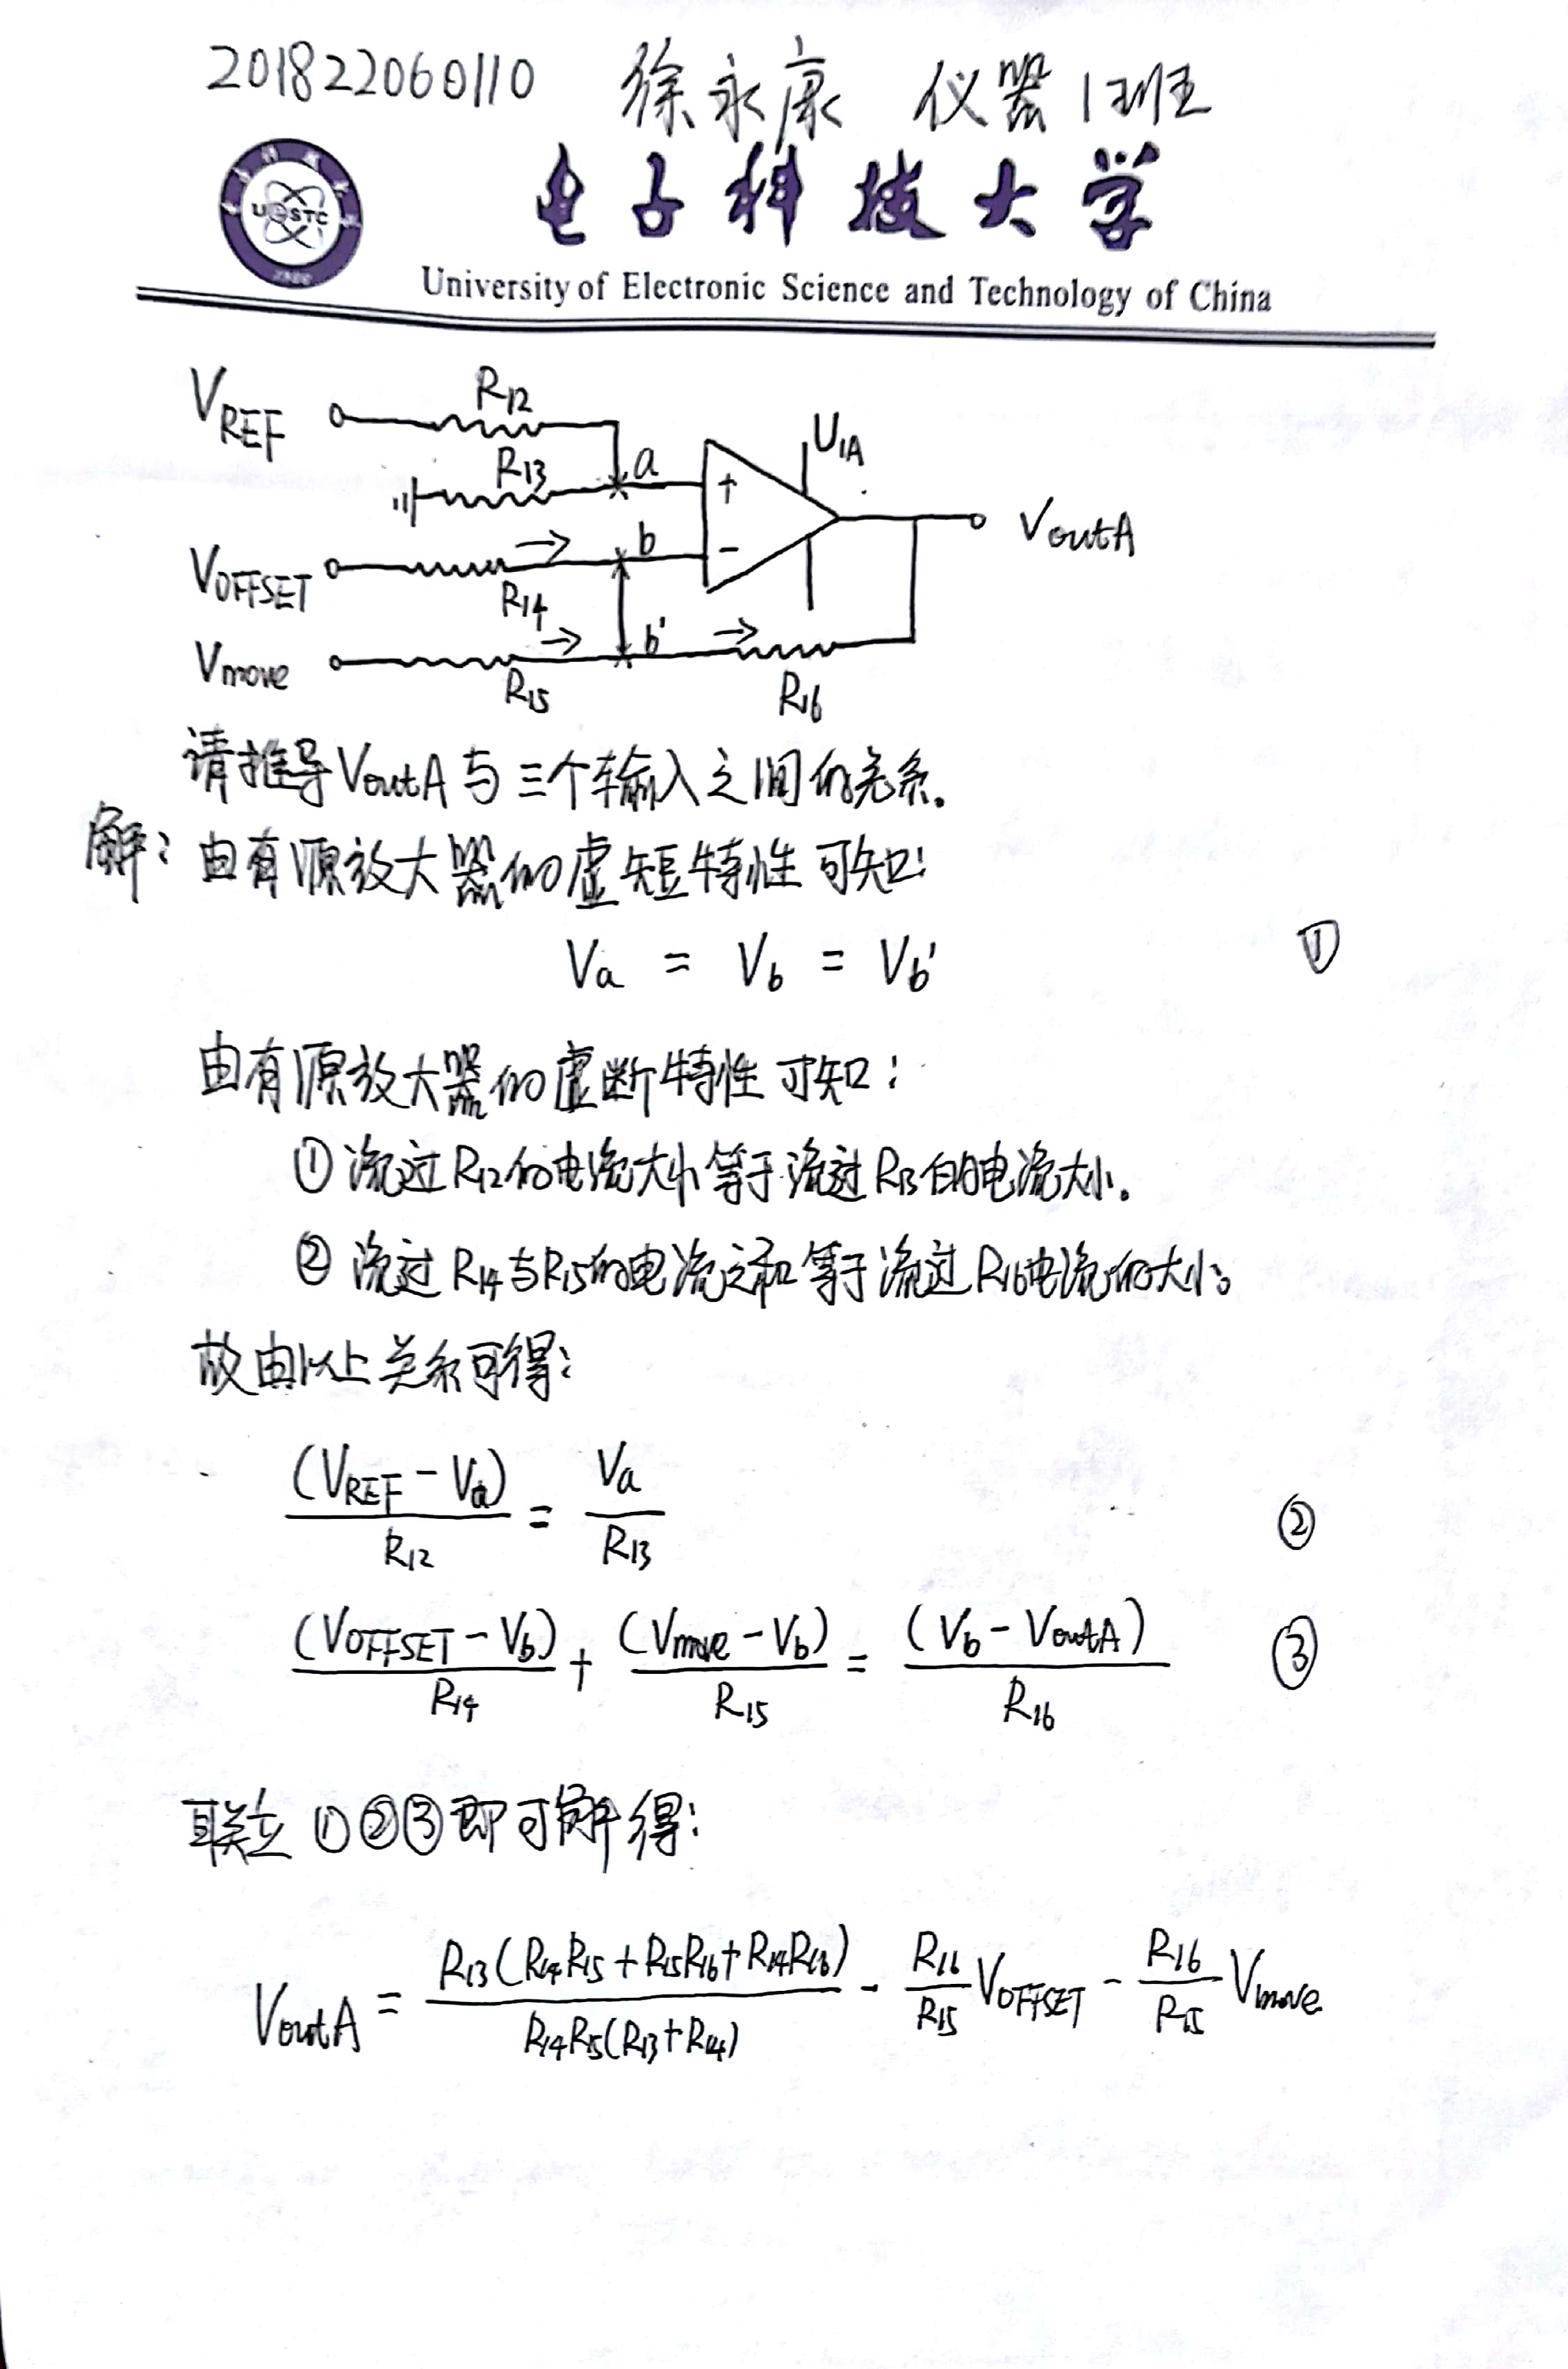 201822060110 徐永康 仪器1班
UESTC
电子科技大学
University of Electronic Science and Technology of China
VREF R12
R13 a + U1A
VOFFSET R14 b - VoutA
Vmove R15 b' R16
请推导VoutA与三个输入之间的关系。
解:由有源放大器的虚短特性可知:
Va = Vb = Vb' ①
由有源放大器的虚断特性可知:
①流过R12的电流大小等于流过R13的电流大小。
②流过R14与R15的电流之和等于流过R16电流的大小。
故由以上关系可得:
(VREF - Va)/R12 = Va/R13 ②
(VOFFSET - Vb)/R14 + (Vmove - Vb)/R15 = (Vb - VoutA)/R16 ③
联立①②③即可解得:
VoutA = R13(R14R15 + R15R16 + R14R16)/R14R15(R13 + R14) - R16/R15 VOFFSET - R16/R15 Vmove